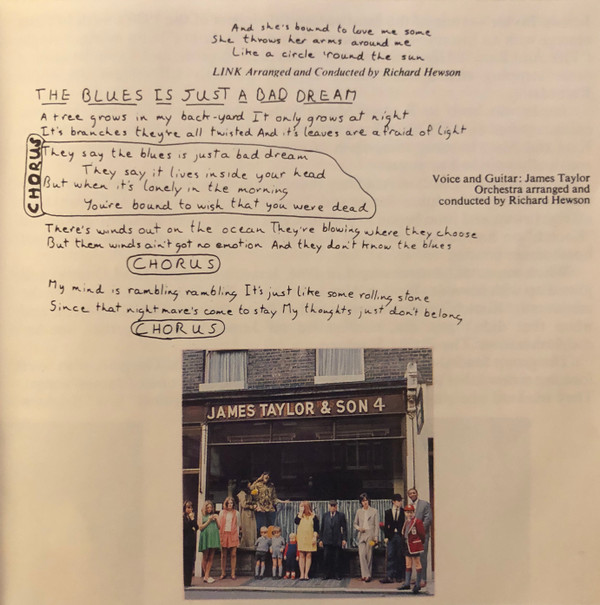 And she's bound to love me some
She throws her arms around me
Like a circle 'round the sun
LINK Arranged and Conducted by Richard Hewson
THE BLUES IS JUST A BAD DREAM
A tree grows in my back-yard It only grows at night
It's branches they're all twisted And it's leaves are afraid of light
CHORUS
They say the blues is just a bad dream
They say it lives inside your head
But when it's lonely in the morning
You're bound to wish that you were dead
Voice and Guitar: James Taylor
Orchestra arranged and
conducted by Richard Hewson
There's winds out on the ocean They're blowing where they choose
But them winds ain't got no emotion And they don't know the blues
CHORUS
My mind is rambling rambling It's just like some rolling stone
Since that nightmare's come to stay My thoughts just don't belong
CHORUS
JAMES TAYLOR & SON 4